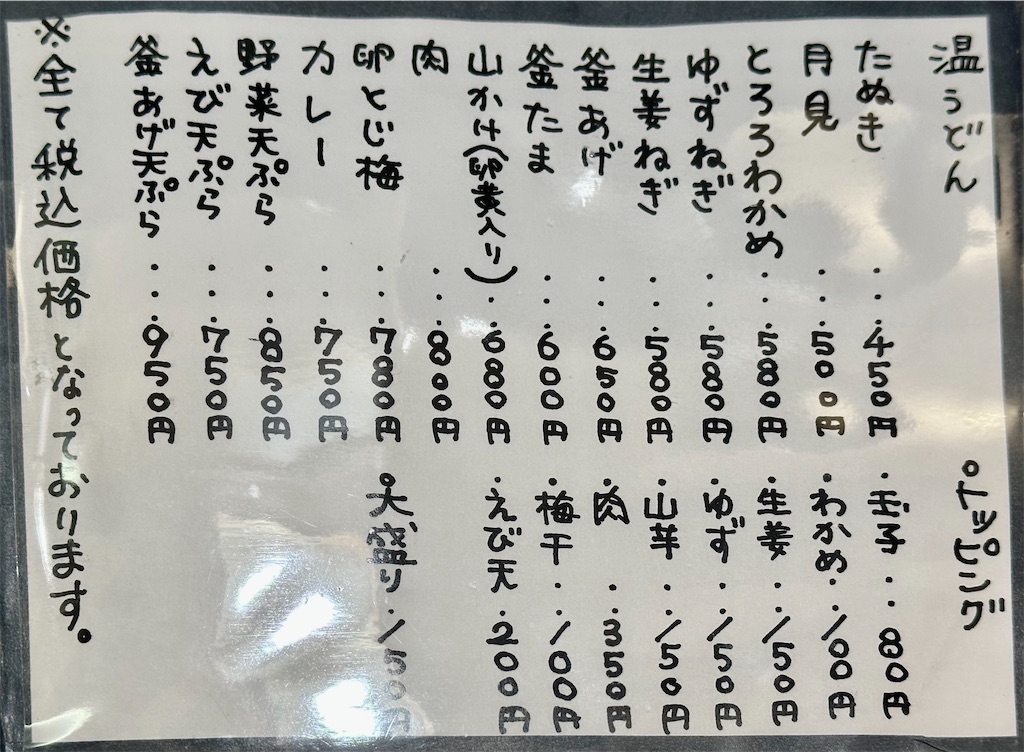 温うどん
たぬき・・・450円
月見・・・500円
とろろわかめ・・・580円
ゆずねぎ・・・580円
生姜ねぎ・・・580円
釜あげ・・・650円
釜たま・・・600円
山かけ(卵黄入り)・・680円
肉・・・800円
卵とじ梅・・・780円
カレー・・・750円
野菜天ぷら・・・850円
えび天ぷら・・・750円
釜あげ天ぷら・・・950円
※全て税込価格となっております。
。トッピング
・玉子・・80円
・わかめ・・100円
・生姜・・150円
・ゆず・・150円
・山芋・・150円
・肉・・350円
・梅干・・100円
・えび天・200円
。大盛り・150円